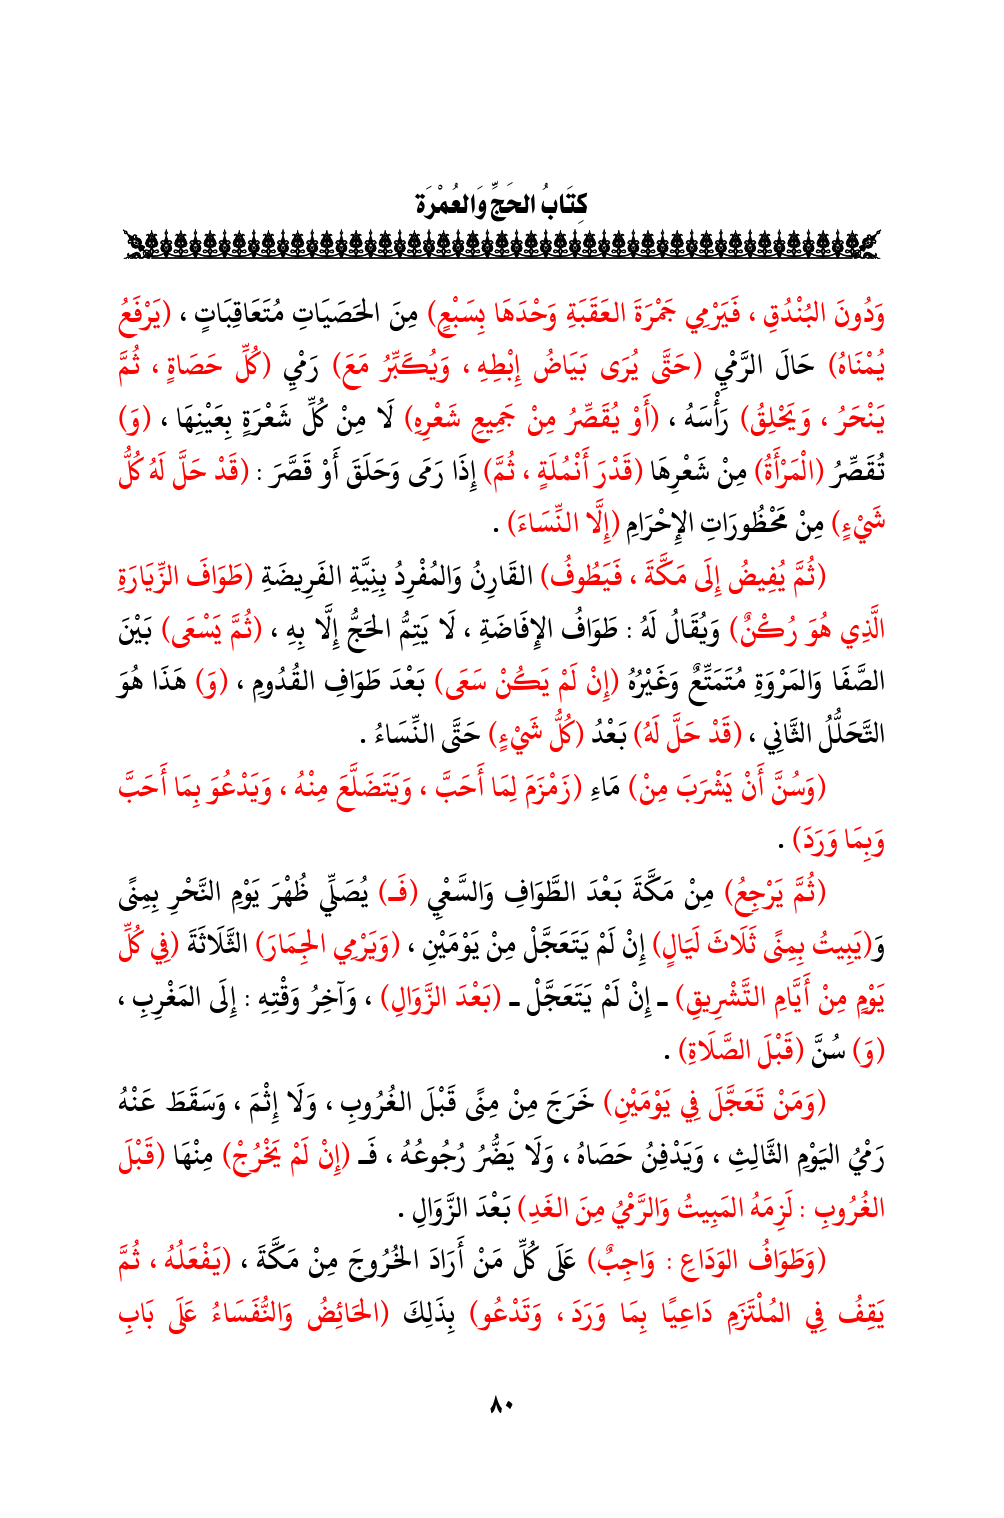 كِتَابُ الحَجِّ وَالعُمْرَة
وَدُونَ البُنْدُقِ ، فَيَرْمِي جَمْرَةَ العَقَبَةِ وَحْدَهَا بِسَبْعٍ) مِنَ الحَصَيَاتِ مُتَعَاقِبَاتٍ ، (يَرْفَعُ
يُمْنَاهُ) حَالَ الرَّمْيِ (حَتَّى يُرَى بَيَاضُ إِبْطِهِ ، وَيُكَبِّرُ مَعَ) رَمْيِ (كُلِّ حَصَاةٍ ، ثُمَّ
يَنْحَرُ ، وَيَحْلِقُ) رَأْسَهُ ، (أَوْ يُقَصِّرُ مِنْ جَمِيعِ شَعْرِهِ) لَا مِنْ كُلِّ شَعْرَةٍ بِعَيْنِهَا ، (وَ)
تُقَصِّرُ (الْمَرْأَةُ) مِنْ شَعْرِهَا (قَدْرَ أَنْمُلَةٍ ، ثُمَّ) إِذَا رَمَى وَحَلَقَ أَوْ قَصَّرَ : (قَدْ حَلَّ لَهُ كُلُّ
شَيْءٍ) مِنْ مَحْظُورَاتِ الإِحْرَامِ (إِلَّا النِّسَاءَ) .
(ثُمَّ يُفِيضُ إِلَى مَكَّةَ ، فَيَطُوفُ) القَارِنُ وَالمُفْرِدُ بِنِيَّةِ الفَرِيضَةِ (طَوَافَ الزِّيَارَةِ
الَّذِي هُوَ رُكْنٌ) وَيُقَالُ لَهُ : طَوَافُ الإِفَاضَةِ ، لَا يَتِمُّ الحَجُّ إِلَّا بِهِ ، (ثُمَّ يَسْعَى) بَيْنَ
الصَّفَا وَالمَرْوَةِ مُتَمَتِّعٌ وَغَيْرُهُ (إِنْ لَمْ يَكُنْ سَعَى) بَعْدَ طَوَافِ القُدُومِ ، (وَ) هَذَا هُوَ
التَّحَلُّلُ الثَّانِي ، (قَدْ حَلَّ لَهُ) بَعْدُ (كُلُّ شَيْءٍ) حَتَّى النِّسَاءُ .
(وَسُنَّ أَنْ يَشْرَبَ مِنْ) مَاءِ (زَمْزَمَ لِمَا أَحَبَّ ، وَيَتَضَلَّعَ مِنْهُ ، وَيَدْعُوَ بِمَا أَحَبَّ
وَبِمَا وَرَدَ) .
(ثُمَّ يَرْجِعُ) مِنْ مَكَّةَ بَعْدَ الطَّوَافِ وَالسَّعْيِ (فَـ) يُصَلِّي ظُهْرَ يَوْمِ النَّحْرِ بِمِنًى
وَ(يَبِيتُ بِمِنًى ثَلَاثَ لَيَالٍ) إِنْ لَمْ يَتَعَجَّلْ مِنْ يَوْمَيْنِ ، (وَيَرْمِي الجِمَارَ) الثَّلَاثَةَ (فِي كُلِّ
يَوْمٍ مِنْ أَيَّامِ التَّشْرِيقِ) ـ إِنْ لَمْ يَتَعَجَّلْ ـ (بَعْدَ الزَّوَالِ) ، وَآخِرُ وَقْتِهِ : إِلَى المَغْرِبِ ،
(وَ) سُنَّ (قَبْلَ الصَّلَاةِ) .
(وَمَنْ تَعَجَّلَ فِي يَوْمَيْنِ) خَرَجَ مِنْ مِنًى قَبْلَ الغُرُوبِ ، وَلَا إِثْمَ ، وَسَقَطَ عَنْهُ
رَمْيُ اليَوْمِ الثَّالِثِ ، وَيَدْفِنُ حَصَاهُ ، وَلَا يَضُّرُ رُجُوعُهُ ، فَـ (إِنْ لَمْ يَخْرُجْ) مِنْهَا (قَبْلَ
الغُرُوبِ : لَزِمَهُ المَبِيتُ وَالرَّمْيُ مِنَ الغَدِ) بَعْدَ الزَّوَالِ .
(وَطَوَافُ الوَدَاعِ : وَاجِبٌ) عَلَى كُلِّ مَنْ أَرَادَ الخُرُوجَ مِنْ مَكَّةَ ، (يَفْعَلُهُ ، ثُمَّ
يَقِفُ فِي المُلْتَزَمِ دَاعِيًا بِمَا وَرَدَ ، وَتَدْعُو) بِذَلِكَ (الحَائِضُ وَالنُّفَسَاءُ عَلَى بَابِ
٨٠